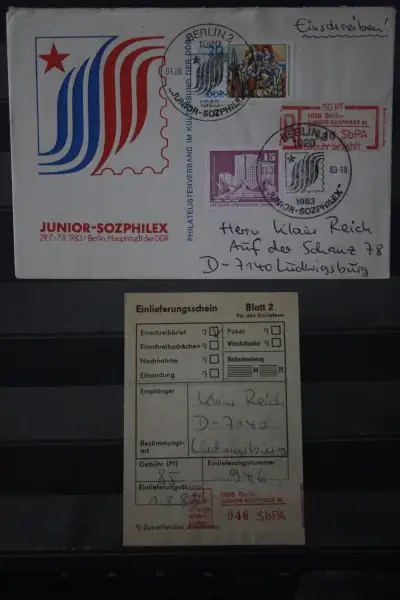 Einschreiben!
BERLIN 2
1020
01.08.
DDR
"JUNIOR-SOZPHILEX"
1983
PHILATELISTENVERBAND IM KULTURBUND DER DDR
50 Pf
1020 Berlin
JUNIOR-SOZPHILEX 83
SbPA
Gebühr bezahlt
BERLIN
1020
15
83-19
1983
JUNIOR-SOZPHILEX"
JUNIOR-SOZPHILEX
29.7.-7.8.1983 / Berlin, Hauptstadt der DDR
Herrn Klaus Reich
Auf der Schanz 78
D-7140 Ludwigsburg
Einlieferungsschein Blatt 2
Für den Einlieferer
Einschreibbrief ¹)
Paket ¹)
Einschreibpäckchen ¹)
Wirtschaftspaket ¹)
Nachnahme ¹)
Nachnahmebetrag
Eilsendung ¹)
M Pf
Empfänger
Klaus Reich
D-7140
Bestimmungs-
ort
Ludwigsburg
Gebühr (Pf) Einlieferungsnummer
85 946
Einlieferungsdatum
1.8.83
1020 Berlin
JUNIOR-SOZPHILEX 83
946 SbPA
¹) Zutreffendes